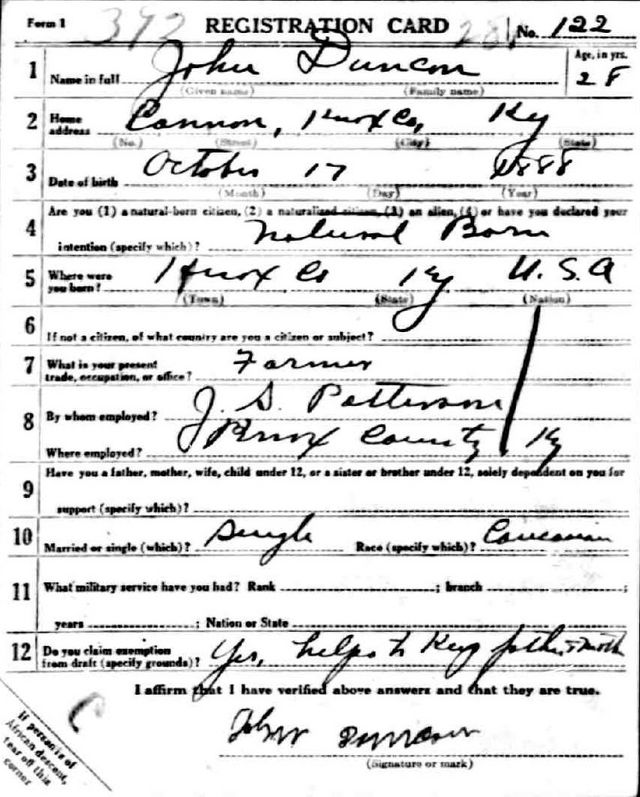 Form 1 392 REGISTRATION CARD No. 122
1 Name in full John Duncan Age, in yrs. 28
(Given name) (Family name)
2 Home address Cannon, Knox Co, Ky
(No.) (Street) (City) (State)
3 Date of birth October 17 1888
(Month) (Day) (Year)
4 Are you (1) a natural-born citizen, (2) a naturalized citizen, (3) an alien, (4) or have you declared your
intention (specify which)? Natural Born
5 Where were you born? Knox Co Ky U.S.A
(Town) (State) (Nation)
6 If not a citizen, of what country are you a citizen or subject?
7 What is your present trade, occupation, or office? Farmer
8 By whom employed? J. S. Patterson
Where employed? Knox County, Ky
9 Have you a father, mother, wife, child under 12, or a sister or brother under 12, solely dependent on you for
support (specify which)?
10 Married or single (which)? Single Race (specify which)? Caucasian
11 What military service have you had? Rank ; branch ;
years ; Nation or State
12 Do you claim exemption from draft (specify grounds)? Yes, helps to Keep father & moth
I affirm that I have verified above answers and that they are true.
John Duncan
(Signature or mark)
If person is of
African descent,
tear off this
corner